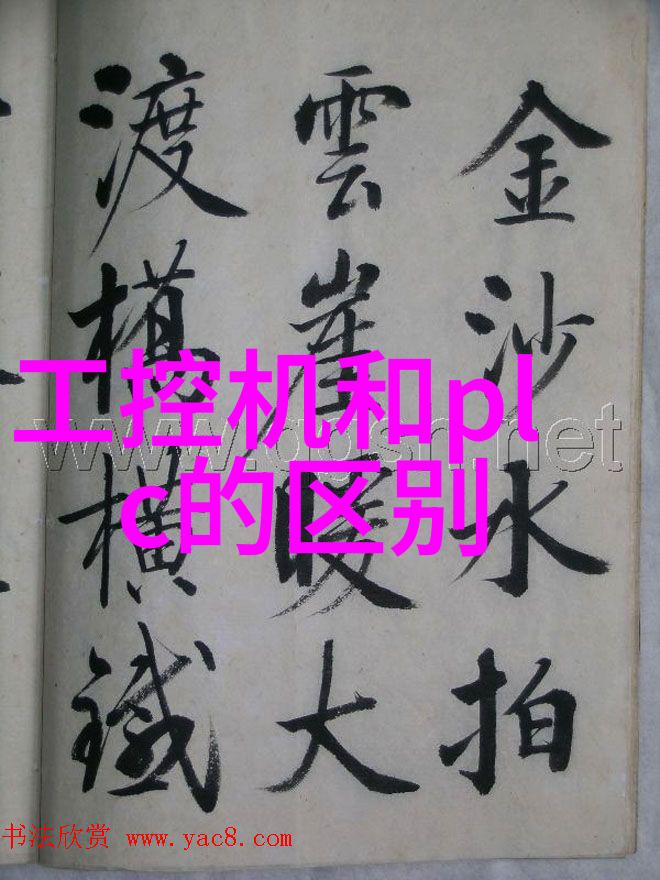 金沙水拍
雲崖暖大
渡橋橫鐵
工控机和pl
c的区别
书法欣赏 www.yac8.com